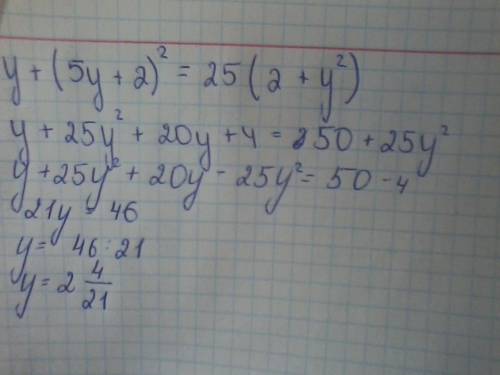 y + (5y + 2)² = 25(2 + y²)
y + 25y² + 20y + 4 = 50 + 25y²
y + 25y² + 20y - 25y² = 50 - 4
21y = 46
y = 46 : 21
y = 2 4/21